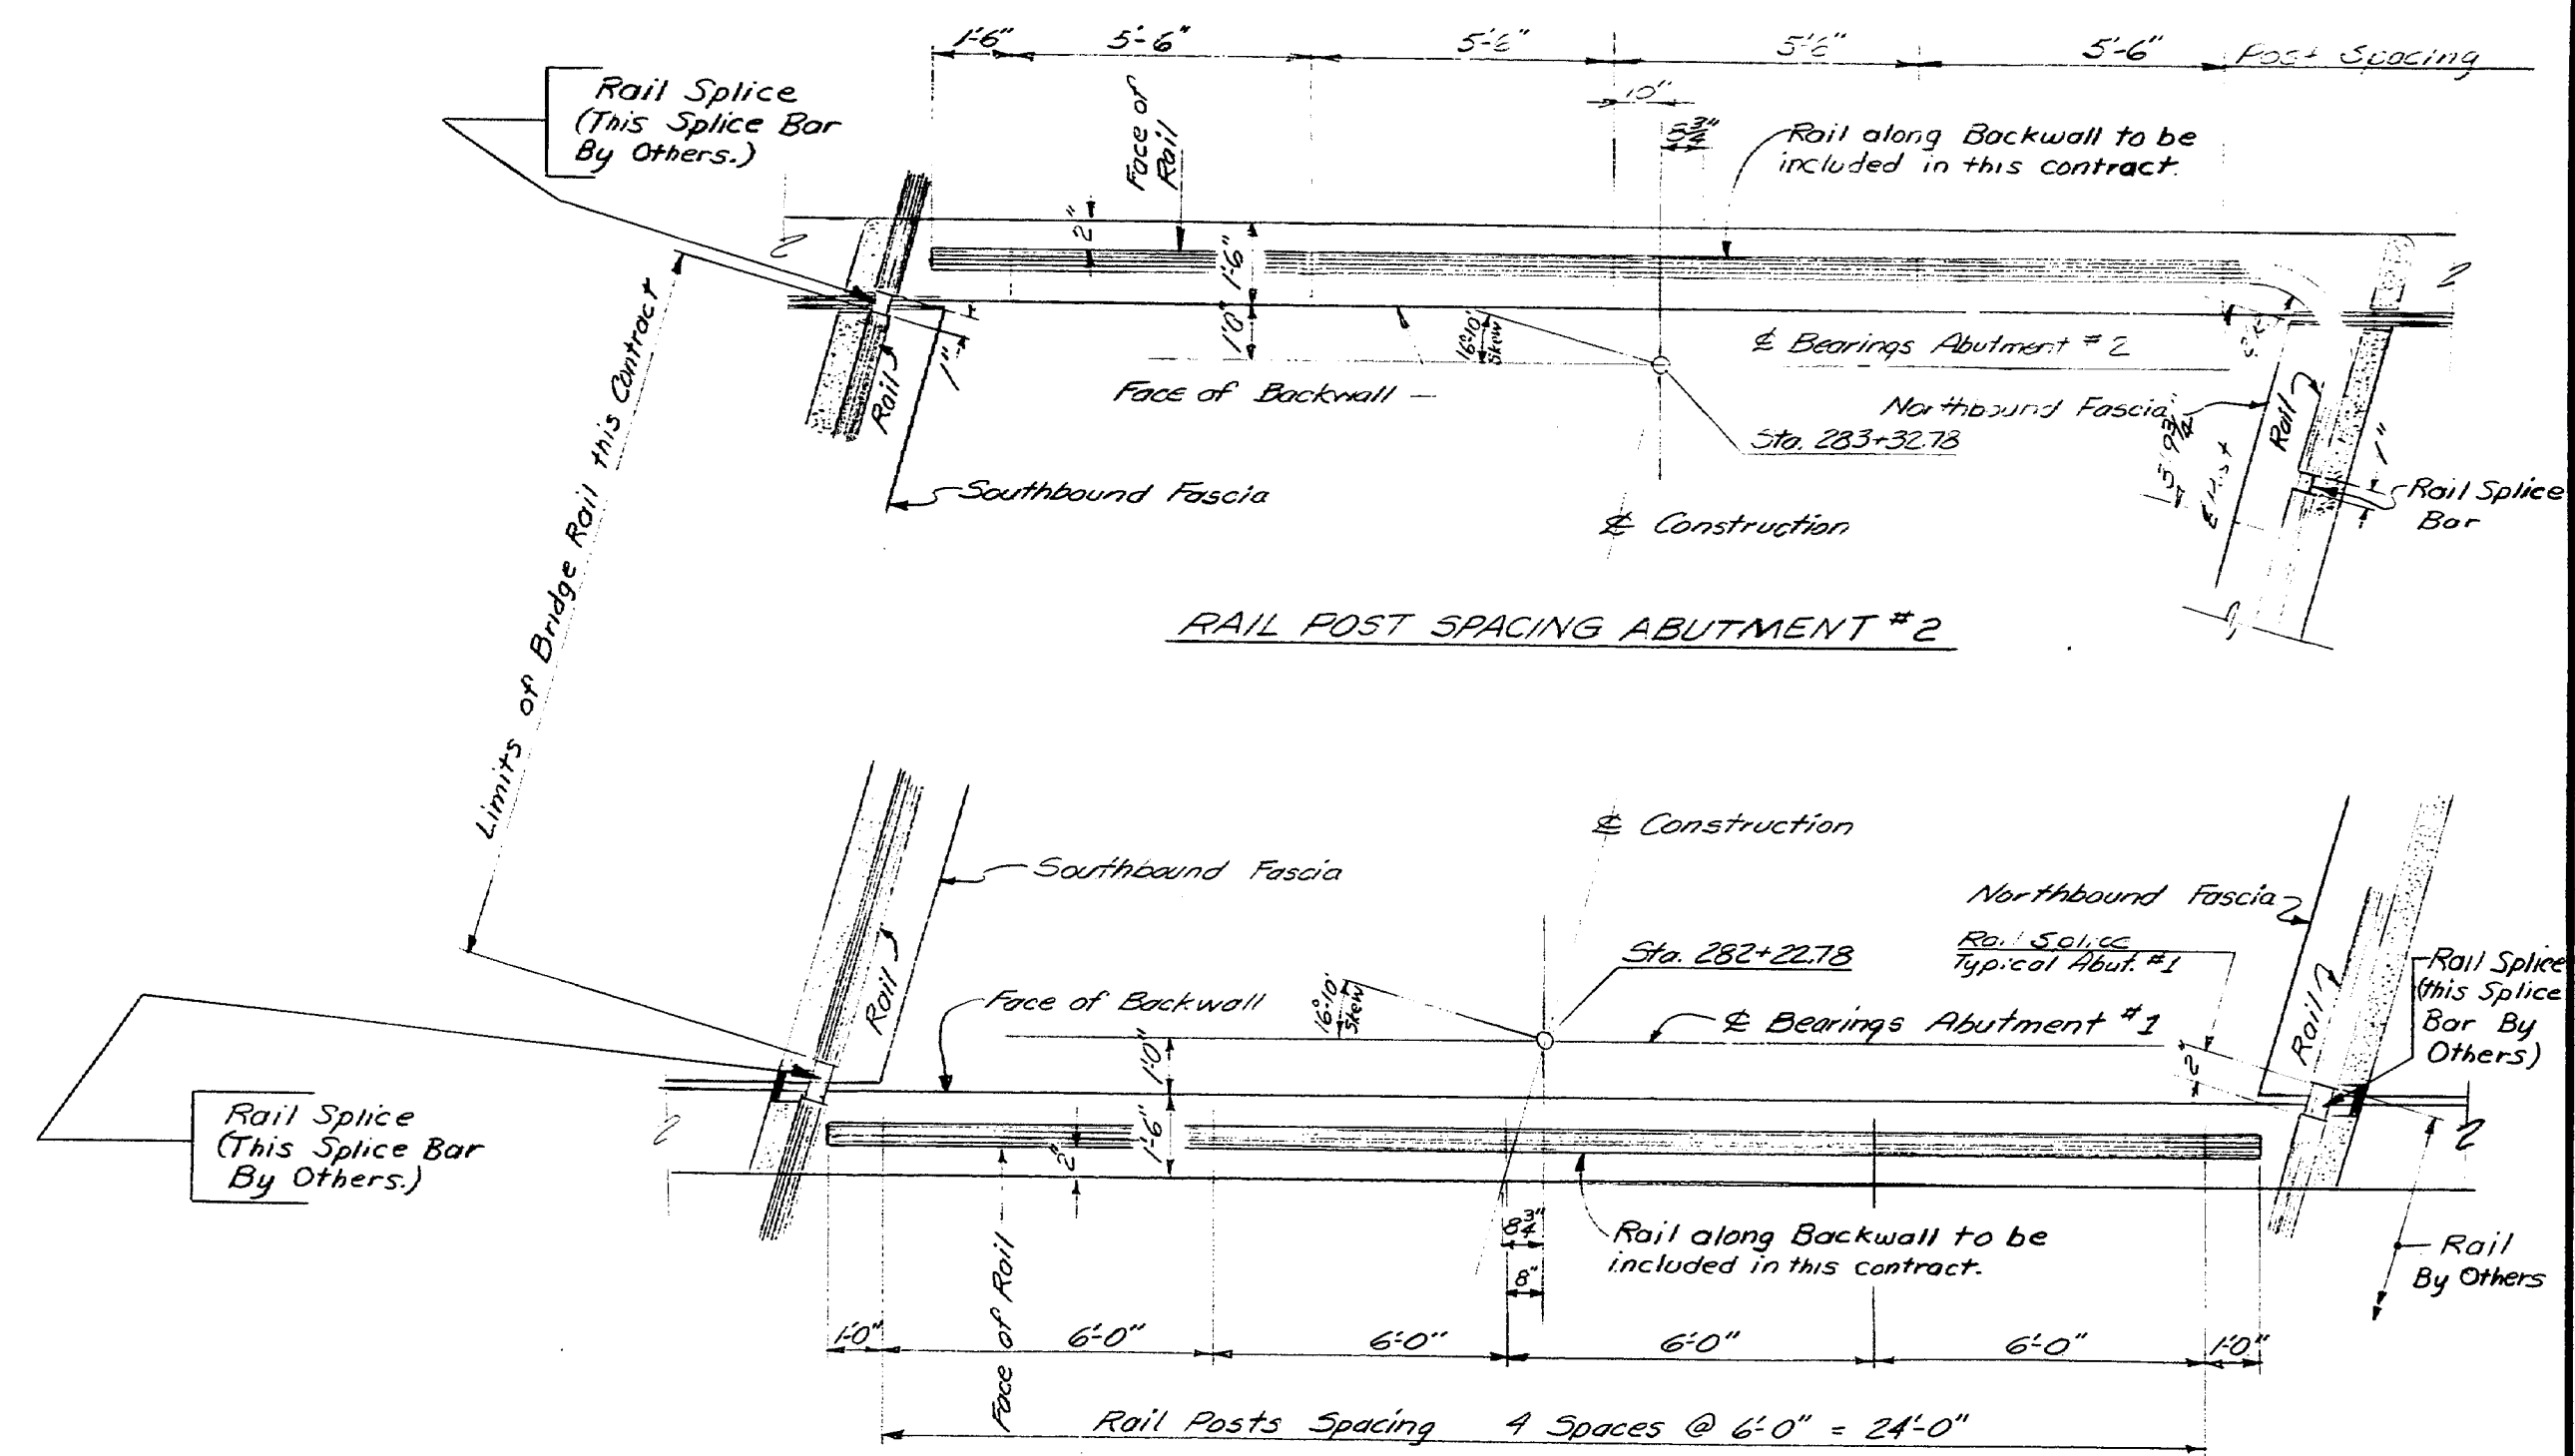 1'-6"
5'-6"
5'-6"
5'-6"
5'-6"
Post Spacing
Rail Splice
(This Splice Bar
By Others.)
Face of
Rail
10"
Rail along Backwall to be
included in this contract.
2
2"
1'-6"
2
1'-0"
16°-10'
Skew
℄ Bearings Abutment #2
Rail
1"
Face of Backwall
Northbound Fascia
Rail
1"
Sta. 283+32.78
Southbound Fascia
Rail Splice
Bar
℄ Construction
Limits of Bridge Rail this Contract
RAIL POST SPACING ABUTMENT #2
℄ Construction
Southbound Fascia
Northbound Fascia
Sta. 282+22.78
Rail Splice
Typical Abut. #1
Rail Splice
(this Splice
Bar By
Others)
Rail
Face of Backwall
16°-10'
Skew
℄ Bearings Abutment #1
Rail
1'-0"
2"
Rail Splice
(This Splice Bar
By Others.)
2
2"
1'-6"
2
8 3/4"
8"
Rail along Backwall to be
included in this contract.
Rail
By Others
Face of Rail
1'-0"
6'-0"
6'-0"
6'-0"
6'-0"
1'-0"
Rail Posts Spacing 4 Spaces @ 6'-0" = 24'-0"